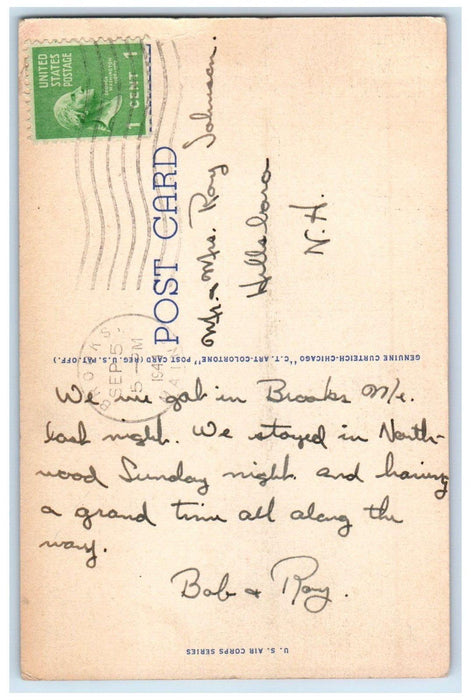 UNITED
STATES
POSTAGE
1 CENT 1
POST CARD
Mr & Mrs. Roy Johnson.
Hillsboro
N.H.
GENUINE CURTEICH-CHICAGO "C.T. ART-COLORTONE" POST CARD (REG. U.S. PAT. OFF.)
BROOKS
SEP 5
5 PM
MAINE
We got in Brooks M/e.
last night. We stayed in North-
wood Sunday night and having
a grand time all along the
way.
Bob & Ray.
U. S. AIR CORPS SERIES